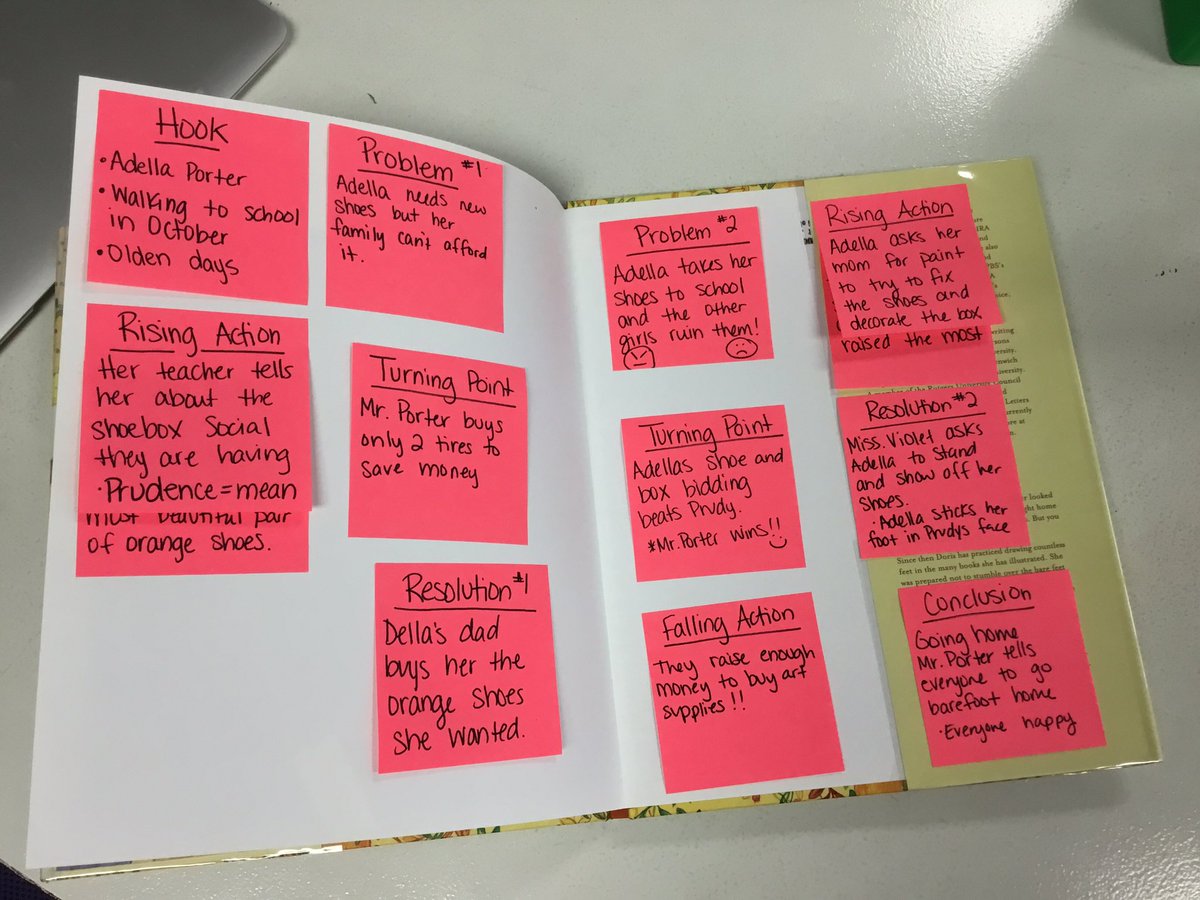 Hook
• Adella Porter
• Walking to school
in October
• Olden days
Problem #1
Adella needs new
shoes but her
family can't afford
it.
Rising Action
Her teacher tells
her about the
shoebox Social
they are having
• Prudence = mean
most beautiful pair
of orange shoes.
Turning Point
Mr. Porter buys
only 2 tires to
save money
Resolution #1
Della's dad
buys her the
orange shoes
she wanted.
Problem #2
Adella takes her
shoes to school
and the other
girls ruin them!
Turning Point
Adellas shoe and
box bidding
beats Prudy.
*Mr. Porter wins!!
Falling Action
They raise enough
money to buy art
supplies!!
Rising Action
Adella asks her
mom for paint
to try to fix
the shoes and
decorate the box
raised the most
Resolution #2
Miss. Violet asks
Adella to stand
and show off her
shoes.
• Adella sticks her
foot in Prudys face
Conclusion
Going home
Mr. Porter tells
everyone to go
barefoot home
• Everyone happy
are
IRA
and
also
and
PBS's
writing
University Council
Letters
currently
more at
looked
right home
But you
Since then Doris has practiced drawing countless
feet in the many books she has illustrated. She
was prepared not to stumble over the bare feet